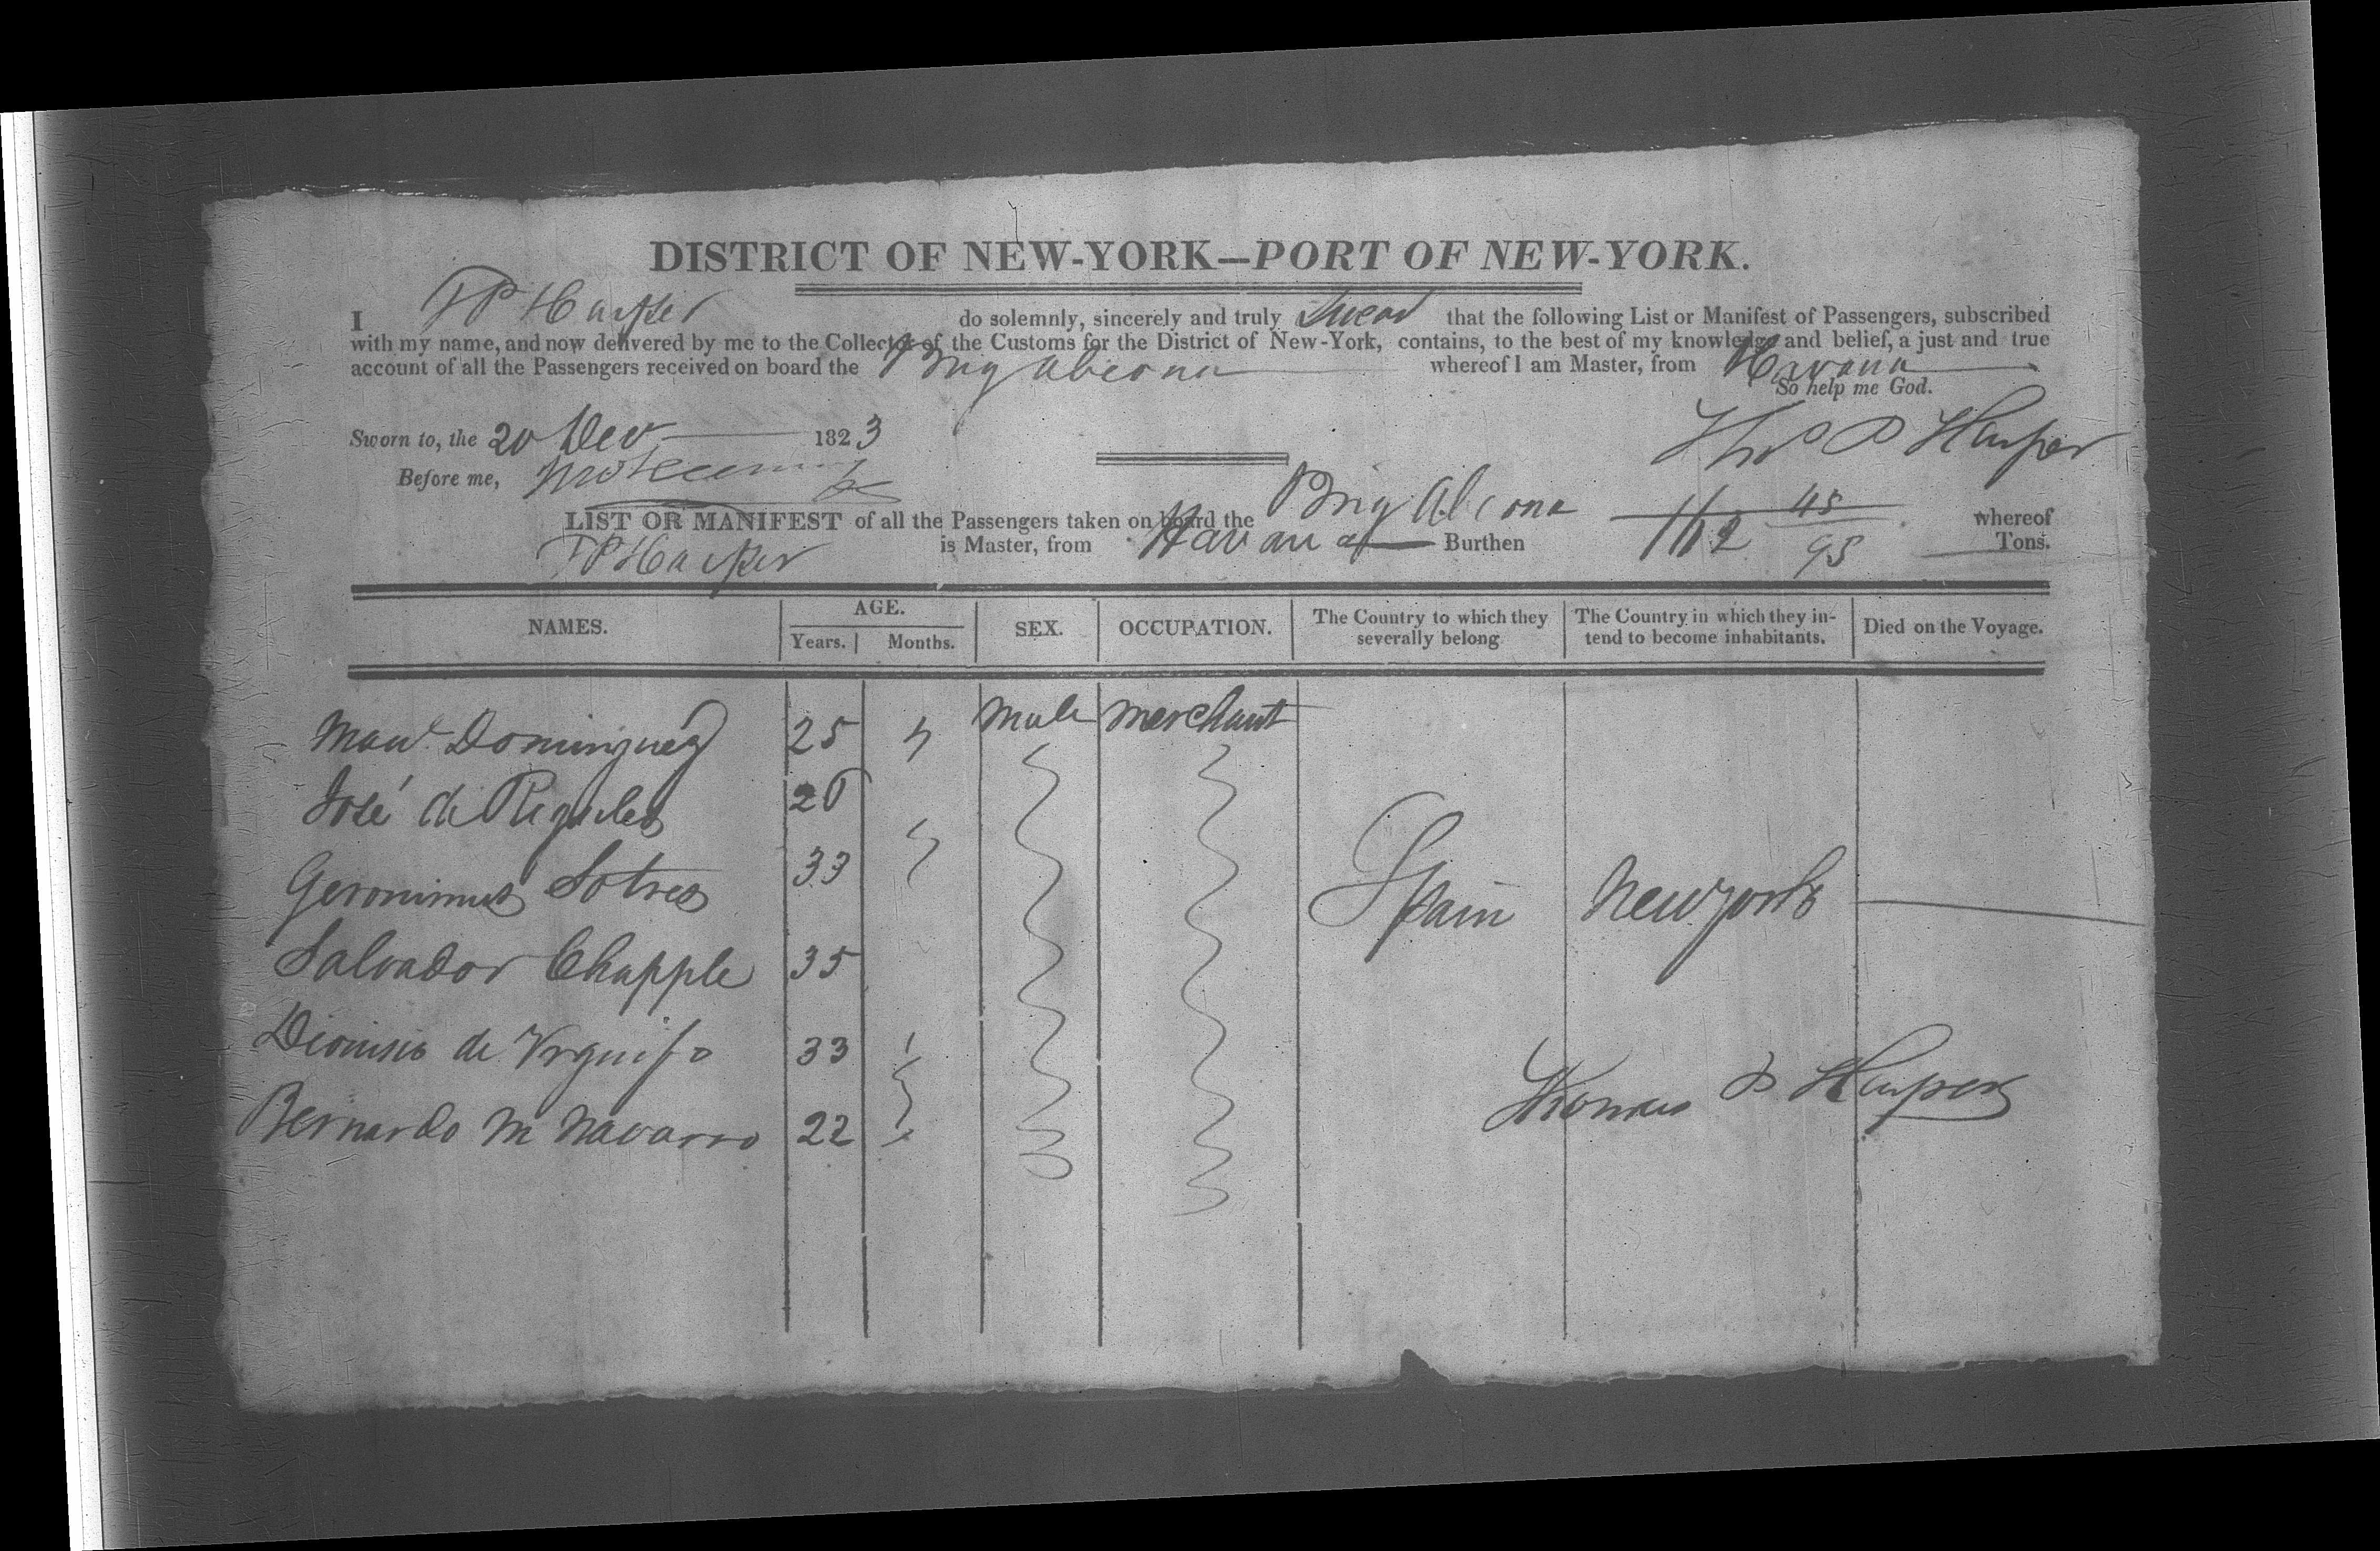 DISTRICT OF NEW-YORK—PORT OF NEW-YORK.
I T P Harper do solemnly, sincerely and truly Swear that the following List or Manifest of Passengers, subscribed
with my name, and now delivered by me to the Collector of the Customs for the District of New-York, contains, to the best of my knowledge and belief, a just and true
account of all the Passengers received on board the Brig Abeona whereof I am Master, from Havana
So help me God.
Sworn to, the 20 Dec 1823
Thos P Harper
Before me,
LIST OR MANIFEST of all the Passengers taken on board the Brig Abeona whereof
T P Harper is Master, from Havana Burthen 112 45/95 Tons.
NAMES. AGE. Years. Months. SEX. OCCUPATION. The Country to which they severally belong The Country in which they intend to become inhabitants. Died on the Voyage.
Manl. Dominguez 25 male merchant
José de Regules 26
Geronimus Sotres 33
Spain New york
Salvador Chapple 35
Dionisio de Vrquiso 33
Thomas P Harper
Bernardo M Navarro 22